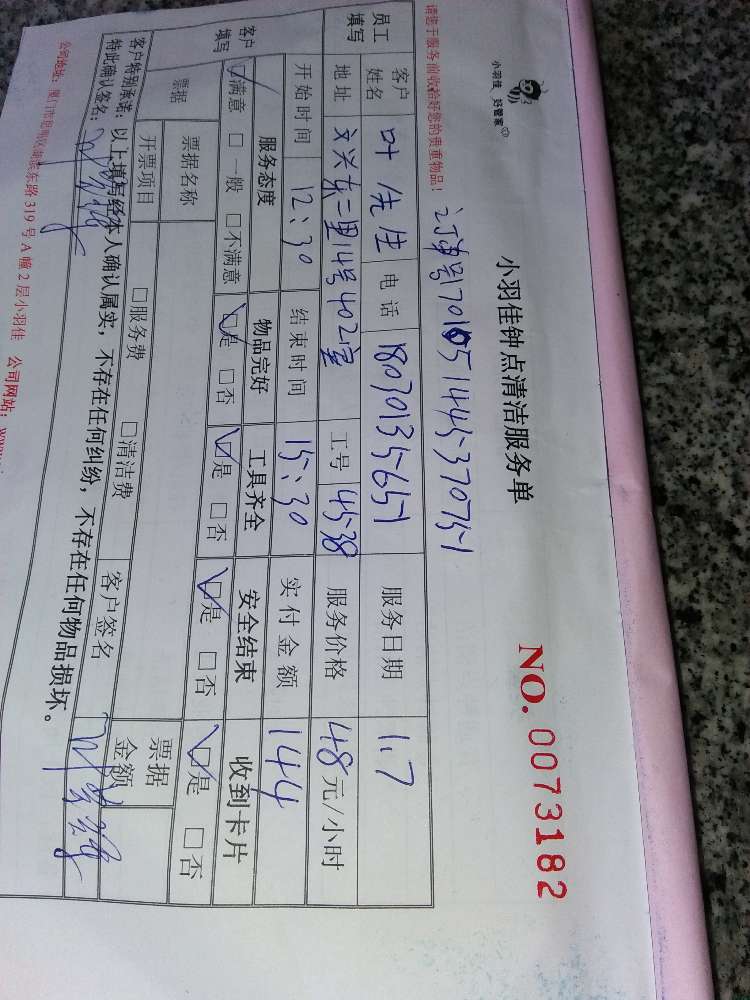 小羽佳 好管家
小羽佳钟点清洁服务单
NO. 0073182
请您于服务前收拾好您的贵重物品！
订单号170105144537075-1
员工填写 客户姓名 叶先生 电话 18030135651 服务日期 1.7
地址 文兴东二里14号402室 工号 4538 服务价格 48元/小时
开始时间 12:30 结束时间 15:30 实付金额 144
客户填写 服务态度 物品完好 工具齐全 安全结束 收到卡片
☑满意 □一般 □不满意 ☑是 □否 ☑是 □否 ☑是 □否 ☑是 □否
票据 票据名称 票据金额
开票项目 □服务费 □清洁费 客户签名
客户特别承诺：以上填写经本人确认属实，不存在任何纠纷，不存在任何物品损坏。
特此确认签名：
东路319号A幢2层小羽佳 公司网站：